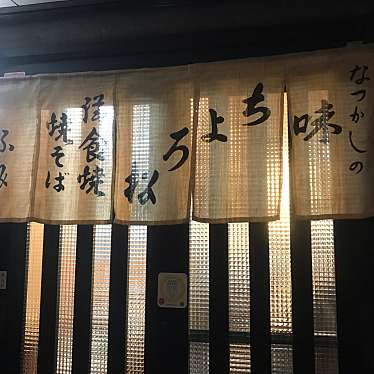 なつかしの
味
ちよろ松
洋食焼
焼そば